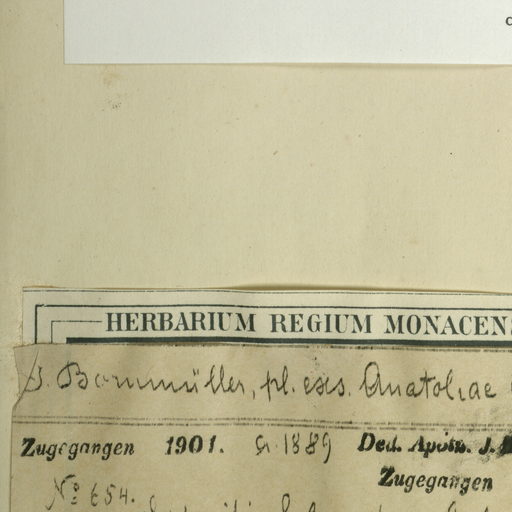 HERBARIUM REGIUM MONACENS
J. Bornmüller, pl. exs. Anatoliae
Zugegangen 1901. a. 1889 Ded. Apoth. J.
Zugegangen
No 654.